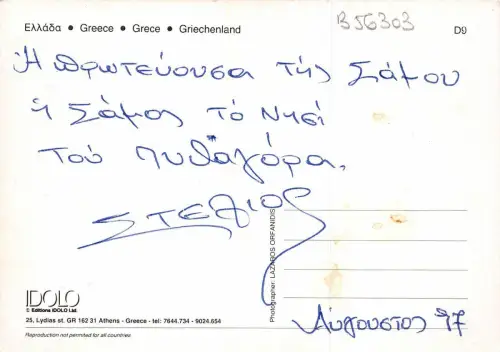 Ελλάδα • Greece • Grece • Griechenland
B56303
D9
Η πρωτεύουσα τής Σάμου
ή Σάμος τό Νησί
τού Πυθαγόρα.
ΣΤΕΛΙΟΣ
Photographer: LAZAROS ORFANIDIS
IDOLO
© Editions IDOLO Ltd.
25, Lydias st. GR 162 31 Athens - Greece - tel: 7644.734 - 9024.654
Reproduction not permited for all countries
Αύγουστος 97